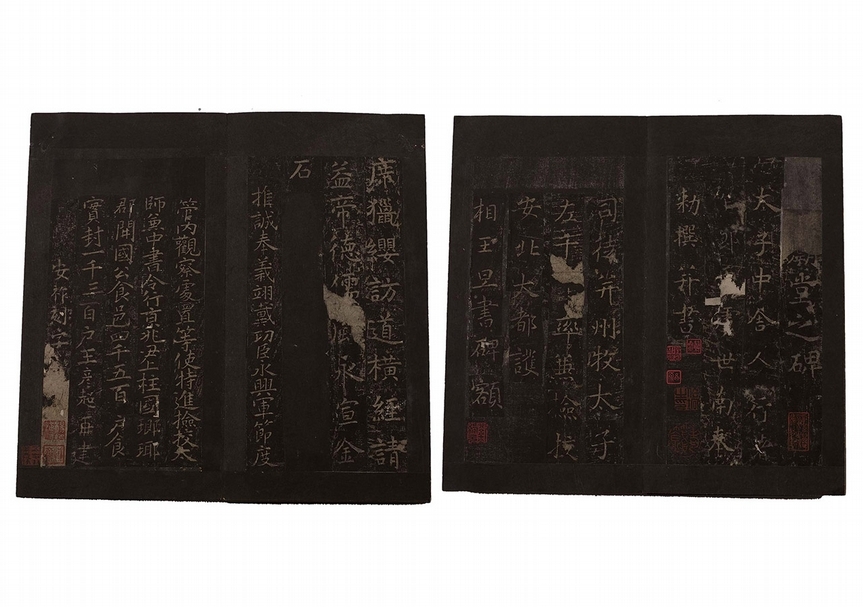 廟堂之碑
太子中舍人行
郎 世南奉
勅撰并書
司徒并州牧太子
左千牛率兼撿挍
安北大都護
相王旦書碑額
庠獵纓訪道橫經請
益帝德儒風永宣金
石
推誠奉義翊戴功臣永興軍節度
管內觀察處置等使特進撿挍太
師兼中書令行京兆尹上柱國瑯琊
郡開國公食邑四千五百戶食
實封一千三百戶王彥超再建
安祚刻字